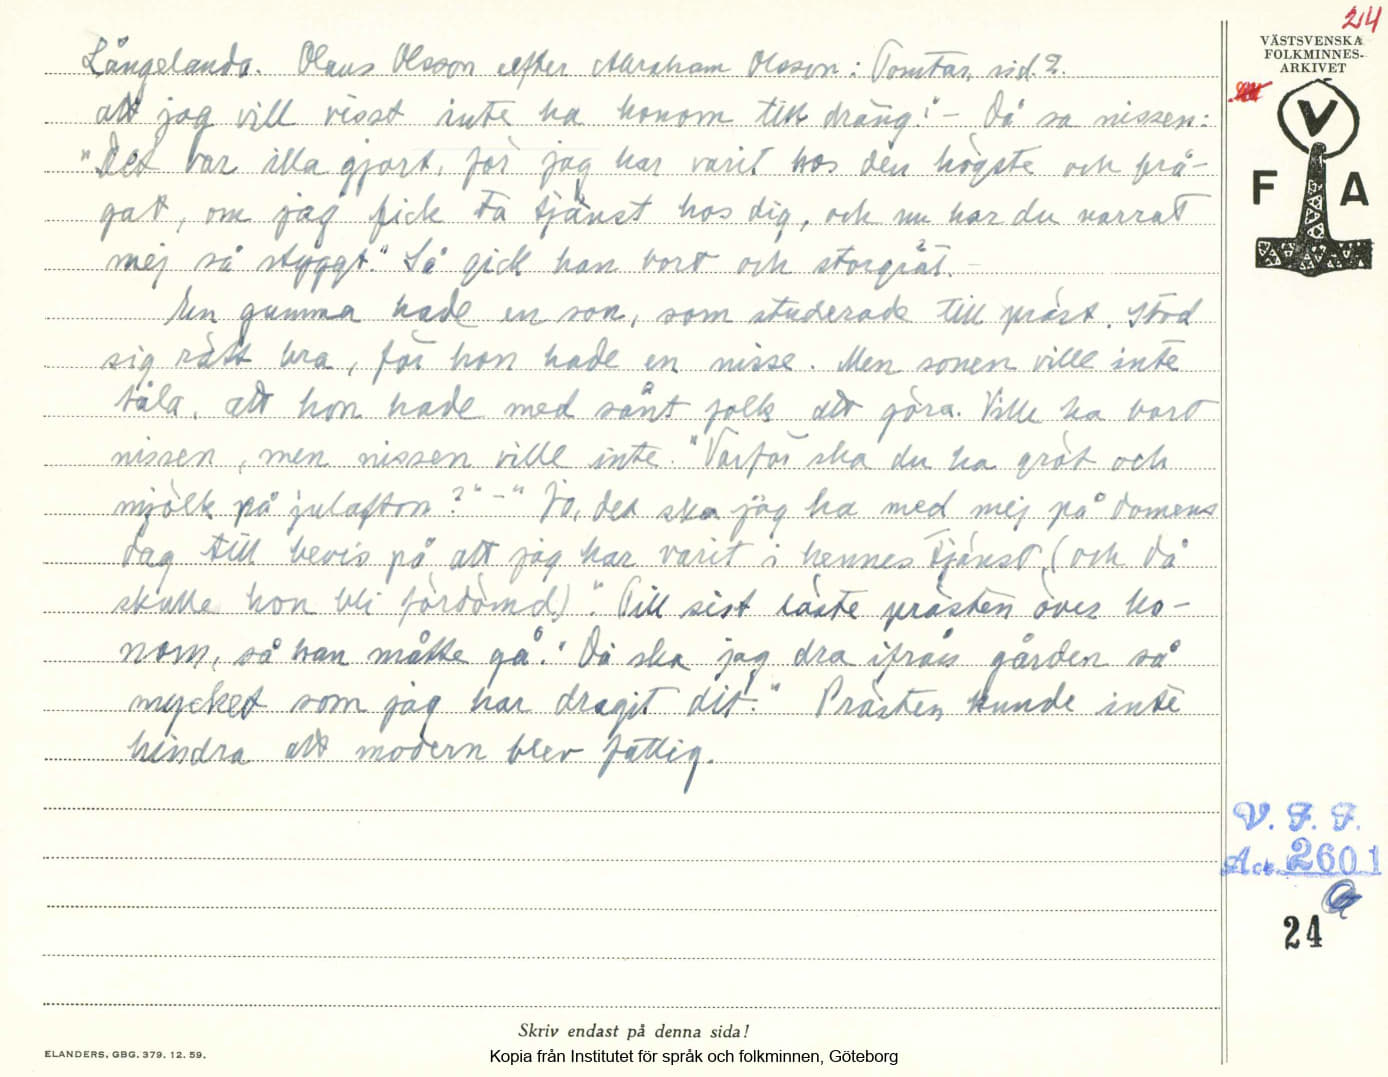 24
VÄSTSVENSKA
FOLKMINNES-
ARKIVET
V
F A
Långelanda. Olaus Olsson efter Abraham Olsson: Tomtar, sid. 2.
att jag vill visst inte ha honom till dräng!" - Då sa nissen:
"Det var illa gjort, för jag har varit hos den högste och frå-
gat, om jag fick ta tjänst hos dig, och nu har du narrat
mej så styggt." Så gick han bort och storgrät. -
En gumma hade en son, som studerade till präst. Stod
sig rätt bra, för hon hade en nisse. Men sonen ville inte
tåla, att hon hade med sånt folk att göra. Ville ha bort
nissen, men nissen ville inte. "Varför ska du ha gröt och
mjölk på julafton?" - "Jo, det ska jag ha med mej på domens
dag till bevis på att jag har varit i hennes tjänst, (och då
skulle hon bli fördömd)". Till sist läste prästen över ho-
nom, så han måtte gå. "Då ska jag dra ifrån gården så
mycket som jag har dragit dit." Prästen kunde inte
hindra att modern blev fattig.
V. F. F.
Acc. 2601
24
Skriv endast på denna sida!
ELANDERS, GBG. 379. 12. 59.
Kopia från Institutet för språk och folkminnen, Göteborg